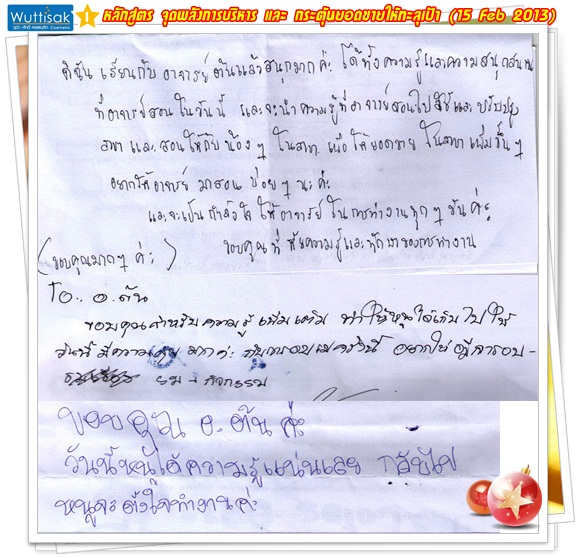 Wuttisak
วุฒิ-ศักดิ์ คอสเมติก Cosmetic
1 หลักสูตร จุดพลังการบริหาร และ กระตุ้นยอดขายให้ทะลุเป้า (15 Feb 2013)
ดิฉัน เรียนกับ อาจารย์ ต้นแล้วสนุกมาก ค่ะ ได้ทั้งความรู้และความสนุกสนาน
ที่อาจารย์สอนในวันนี้ และจะนำความรู้ที่อาจารย์สอนไปใช้และปรับปรุง
สาขา และ สอนให้กับน้องๆ ในสาขา เพื่อให้ยอดขาย ในสาขา เพิ่มขึ้นๆ
อยากให้อาจารย์ มาสอน บ่อยๆ นะค่ะ
และจะเป็น กำลังใจ ให้ อาจารย์ ในการทำงานทุกๆ วันค่ะ
ขอบคุณที่ ความรู้และ ของการทำงาน
(ขอบคุณมากๆ ค่ะ)
To.. อ.ต้น
ขอบคุณสำหรับความรู้ เพิ่มเติม ทำให้หนูได้เก็บไปใช้
วันนี้ มีความสุข มากค่ะ กับการอบรมครั้งนี้ อยากให้มีการอบ-
รม + กิจกรรม
ขอบคุณ อ. ต้น ค่ะ
วันนี้หนูได้ความรู้แน่นเลย กลับไป
หนูจะตั้งใจทำงานค่ะ